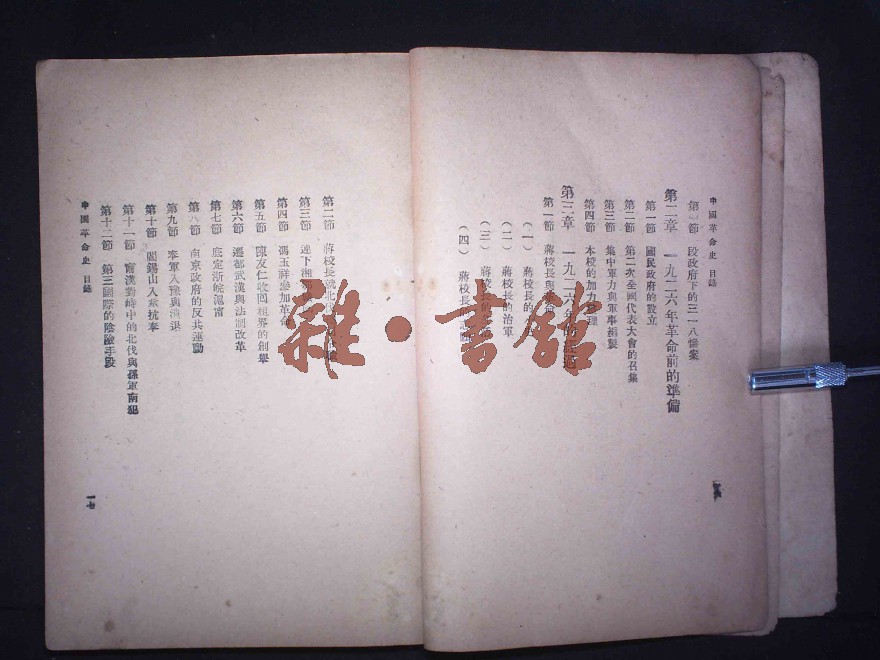 中國革命史 目錄
第 節 段政府下的三一八慘案
第二章 一九二六年革命前的準備
第一節 國民政府的設立
第二節 第二次全國代表大會的召集
第三節 集中軍力與軍事編製
第四節 本校的加力 理
第三章 一九二六年的
第一節 蔣校長與革命
(一) 蔣校長的
(二) 蔣校長的治軍
(三) 蔣校長的
(四) 蔣校長
第二節 蔣校長就北伐
第三節 連下湘
第四節 馮玉祥參加革命
第五節 陳友仁收回租界的創舉
第六節 遷都武漢與法制改革
第七節 底定浙皖滬甯
第八節 南京政府的反共運動
第九節 奉軍入豫與潰退
第十節 閻錫山入黨抗奉
第十一節 甯漢對峙中的北伐與孫軍南犯
第十二節 第三國際的陰險手段
中國革命史 目錄
一七
雜·書館